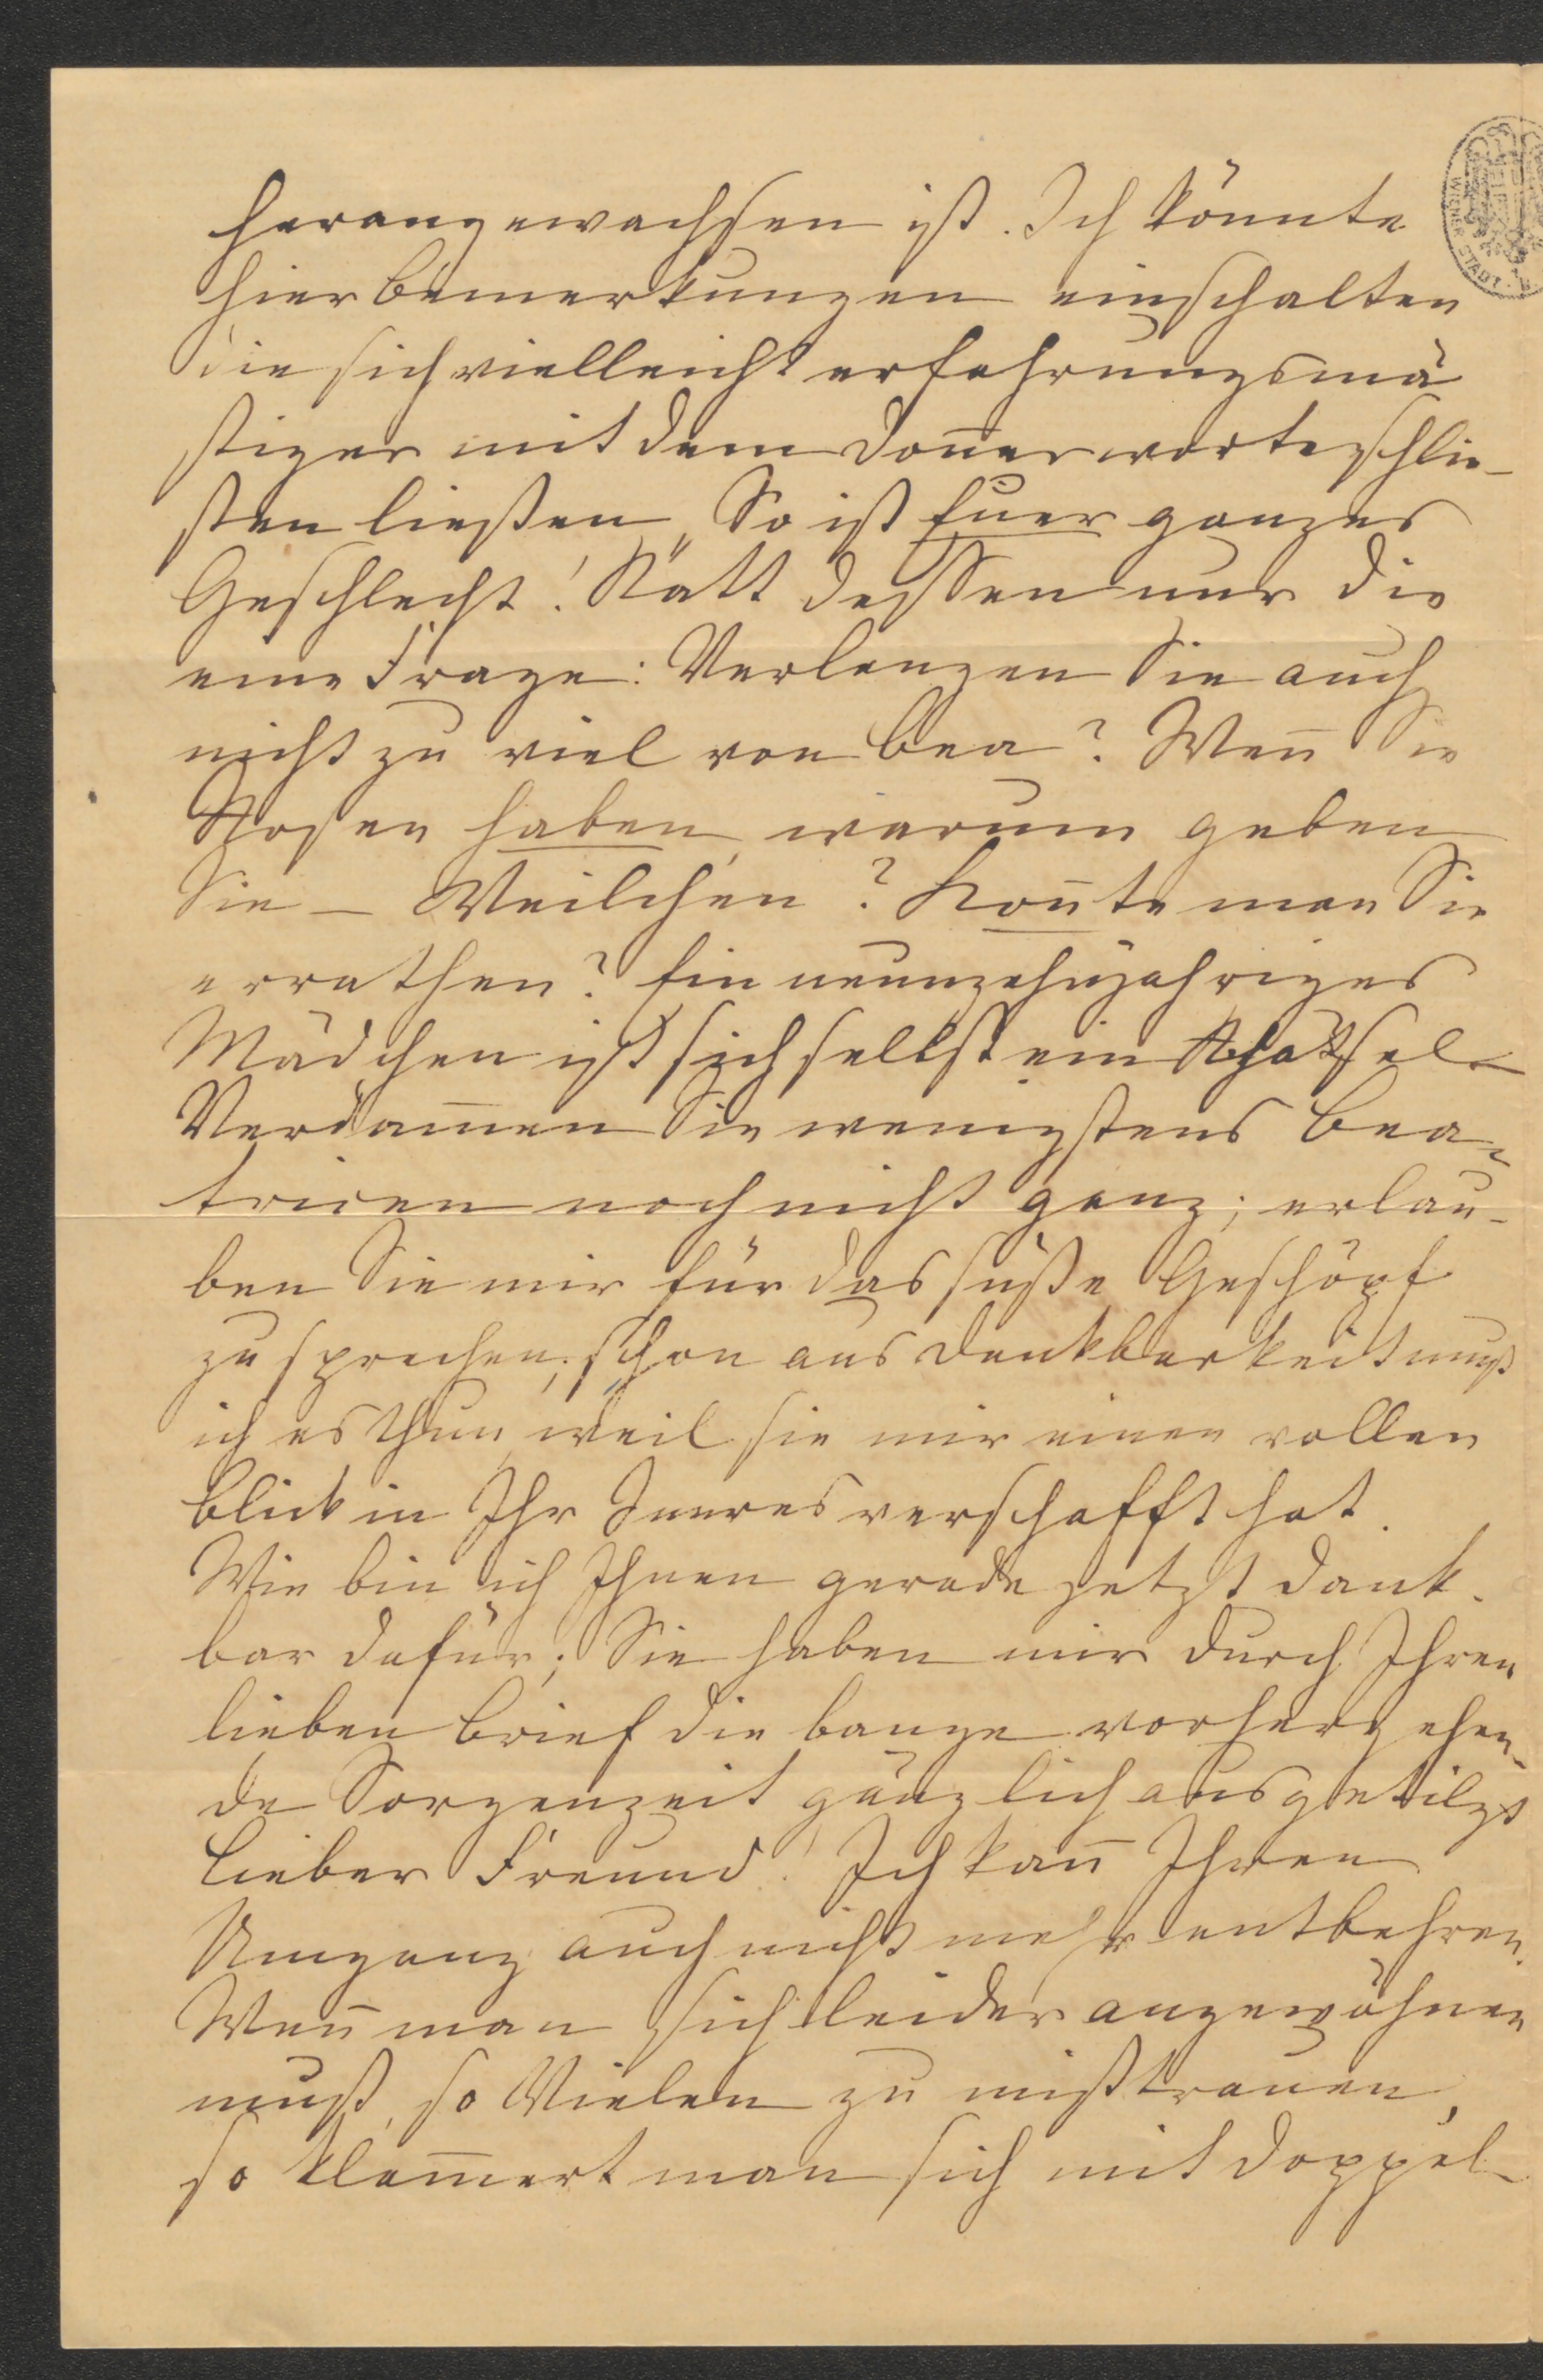 herangewachsen ist. Ich könnte
hier Bemerkungen einschalten
die sich vielleicht erfahrungsmä
ßiger mit dem Donnerworte schlie-
ßen ließen „So ist Euer ganzes
Geschlecht! Statt dessen nur die
eine Frage: Verlangen Sie auch
nicht zu viel von Bea? Wen̄ Sie
Rosen haben, warum geben
Sie – Veilchen? Kon̄te man Sie
errathen? Ein neunzehnjahriges
Mädchen ist sich selbst ein Räthsel
Verdam̄en Sie wenigstens Bea-
tricen noch nicht ganz; erlau-
ben Sie mir für das süße Geschöpf
zu sprechen; schon aus Dankbarkeit muß
ich es thun, weil sie mir einen vollen
Blick in Ihr Inneres verschafft hat.
Wie bin ich Ihnen gerade jetzt dank-
bar dafür; Sie haben mir durch Ihren
lieben Brief die bange vorhergehen-
de Sorgenzeit gänzlich ausgetilgt
lieber Freund! Ich kan̄ Ihren
Umgang auch nicht mehr entbehren.
Wen̄ man sich leider angewöhnen
muß, so Vielen zu mißtrauen,
so klam̄ert man sich mit doppel-